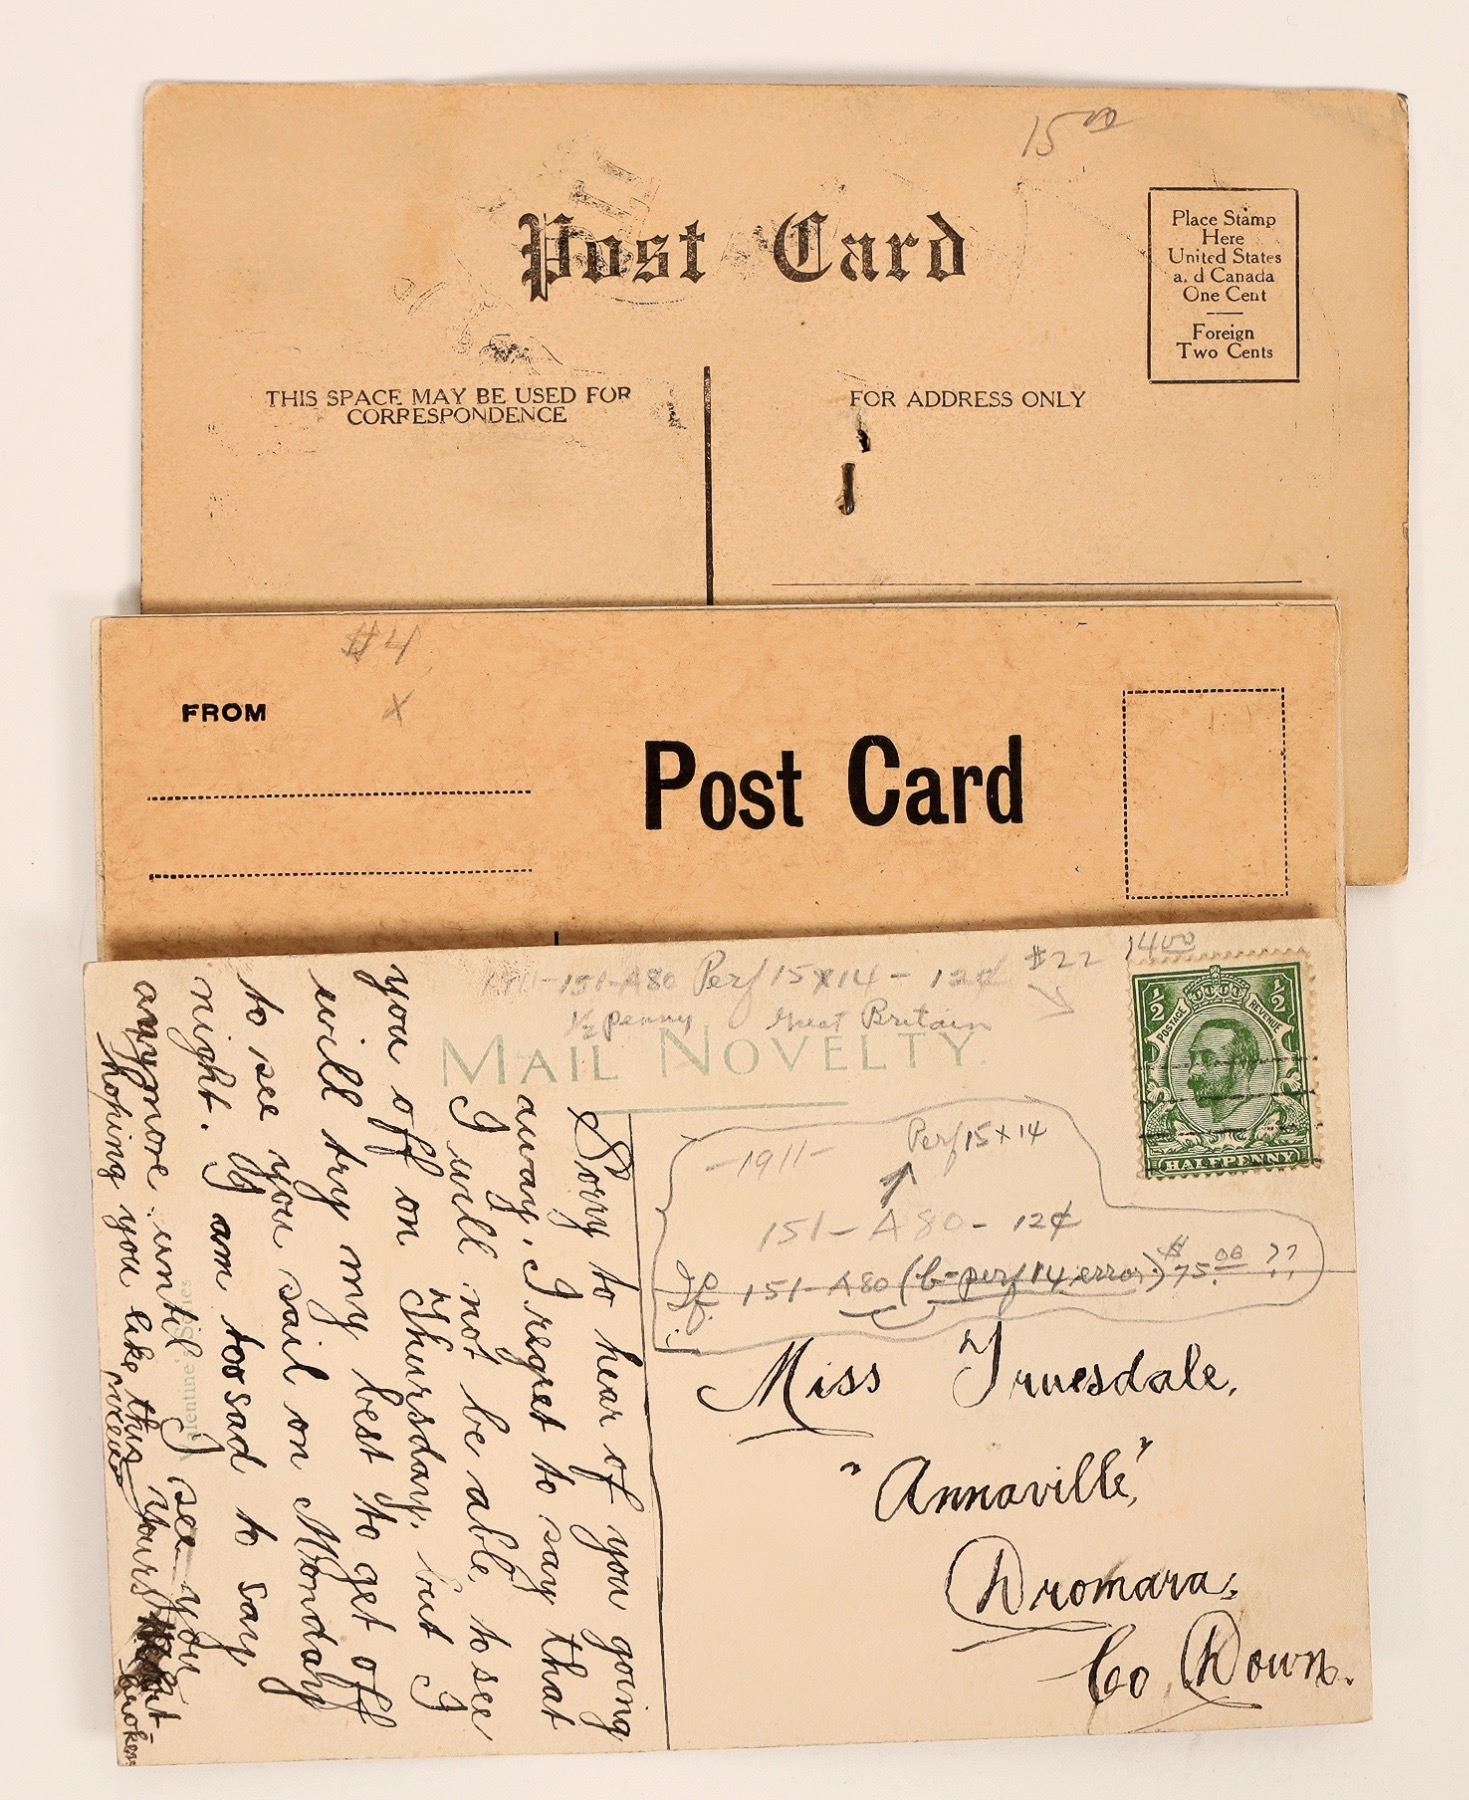 15 00
Post Card
Place Stamp
Here
United States
a. d Canada
One Cent
Foreign
Two Cents
THIS SPACE MAY BE USED FOR
CORRESPONDENCE
FOR ADDRESS ONLY
#4
x
FROM
Post Card
151-A80 Perf 15x14 - 12¢
#22
1400
½ penny Great Britain
MAIL NOVELTY.
½ ½
POSTAGE REVENUE
HALFPENNY
-1911-
Perf 15x14
151-A80-12¢
If 151-A80 (b-perf 14 error) $75.00 ??
Miss Truesdale,
"Annaville,"
Dromara,
Co. Down.
Sorry to hear of you going
away, I regret to say that
I will not be able to see
you off on Thursday, but I
will try my best to get off
to see you sail on Monday
night. I am too sad to say
anymore until I see you
hoping you like this yours
broken